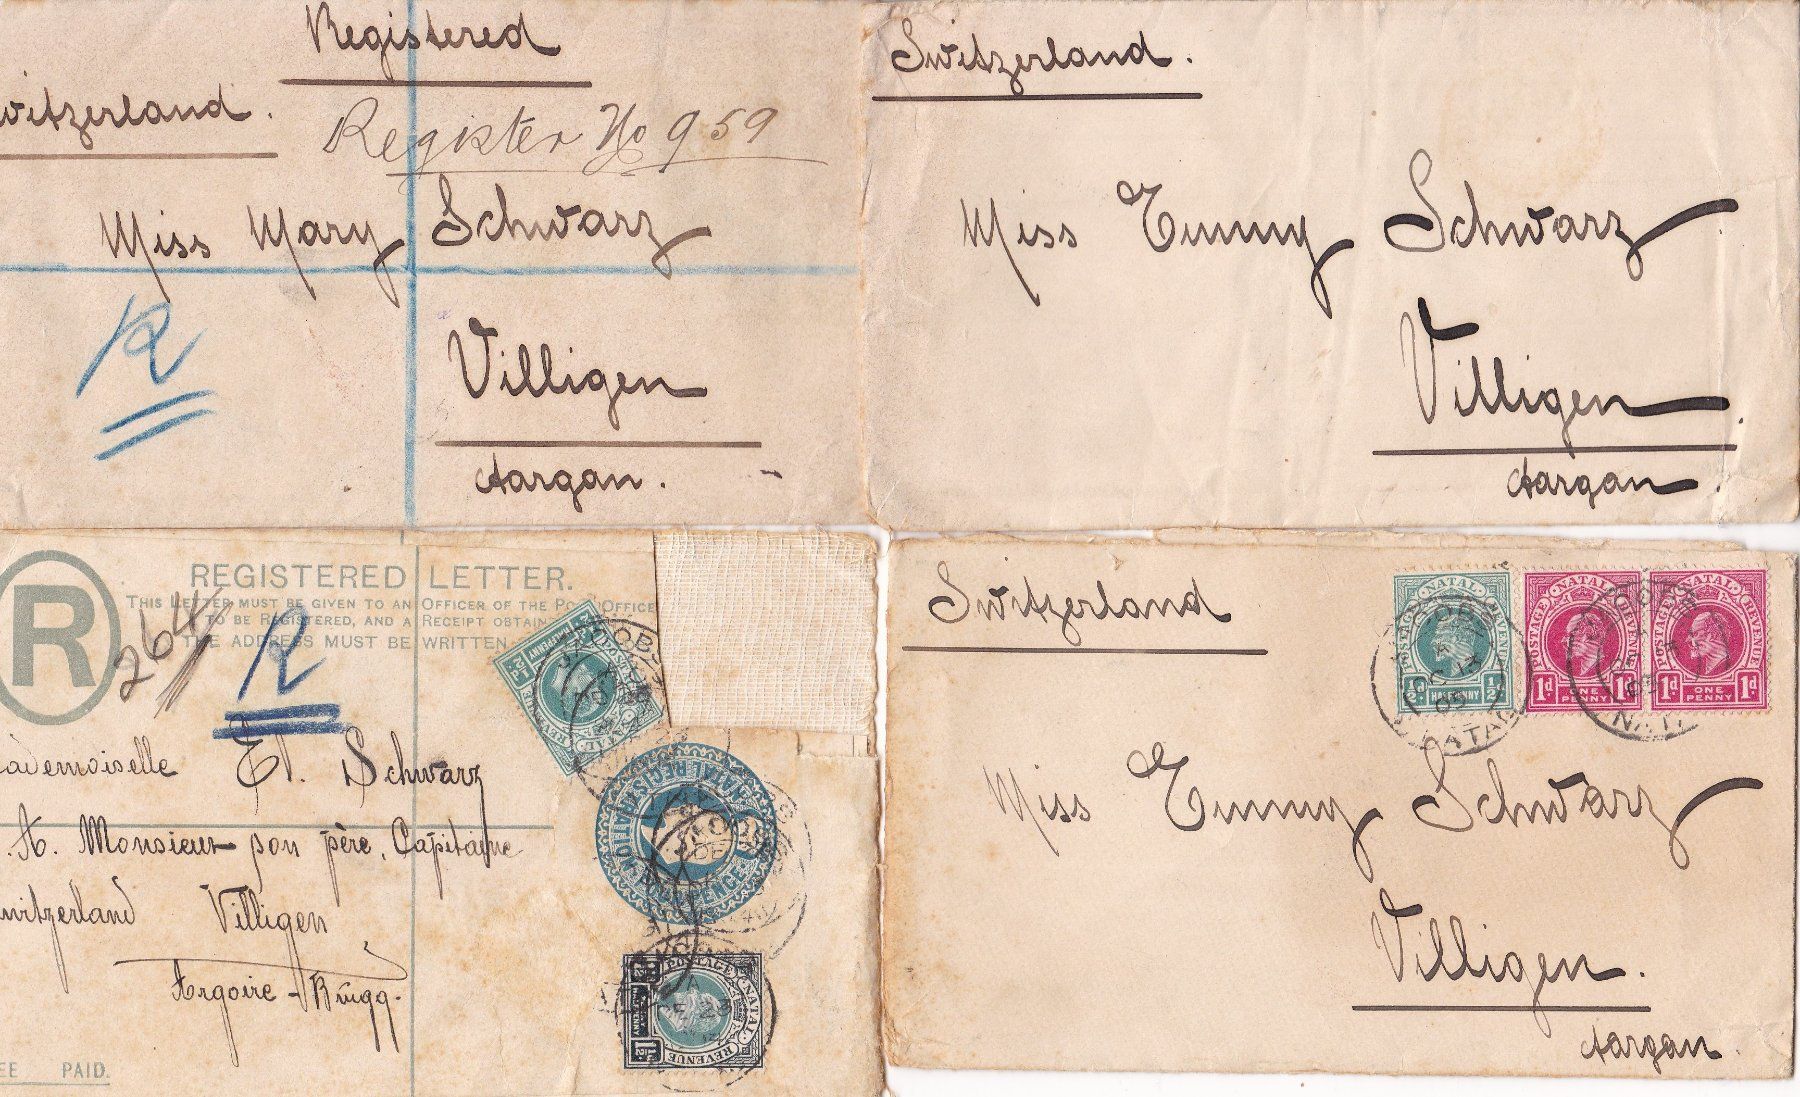 Registered
witzerland.
Register No 959
Miss Mary Schwarz
R
Villigen
Aargau.
Switzerland.
Miss Emmy Schwarz
Villigen.
Aargau.
R
REGISTERED LETTER.
THIS LETTER MUST BE GIVEN TO AN OFFICER OF THE POST OFFICE
TO BE REGISTERED, AND A RECEIPT OBTAIN
THE ADDRESS MUST BE WRITTEN
264
R
ademoiselle Schwarz
A. Monsieur son père, Capitaine
witzerland Villigen
Argovie - Brugg.
EE PAID.
NATAL REGISTRATION
FOURPENCE
POSTAGE NATAL REVENUE
1½
Switzerland
NATAL
POSTAGE REVENUE
½d HALFPENNY ½
NATAL
POSTAGE REVENUE
1d ONE PENNY 1d
NATAL
POSTAGE REVENUE
1d ONE PENNY 1d
NATAL
Miss Emmy Schwarz
Villigen.
Aargau.